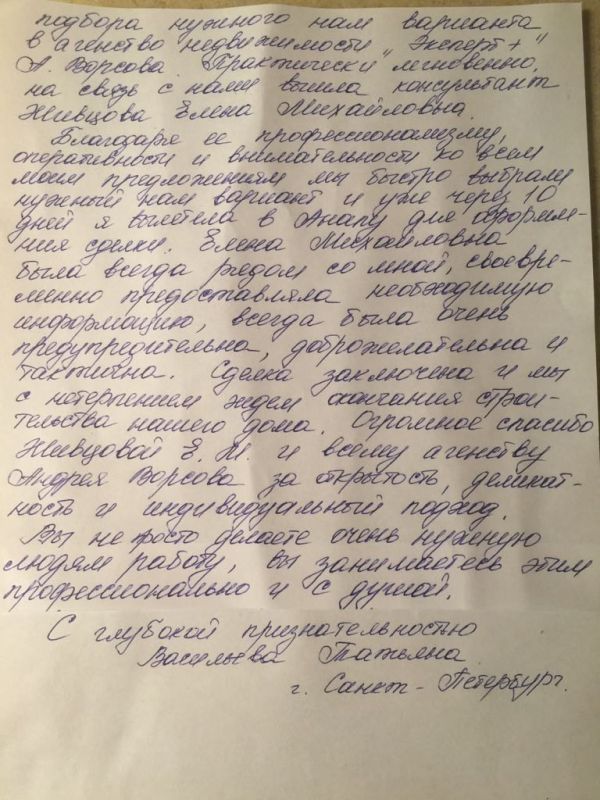 подбора нужного нам варианта
в агенство недвижимости "Эксперт+"
А. Ворсова. Практически мгновенно,
на связь с нами вышла консультант
Живцова Елена Михайловна.
Благодаря ее профессионализму,
оперативности и внимательности ко всем
моим предложениям мы быстро выбрали
нужный нам вариант и уже через 10
дней я вылетела в Анапу для оформле-
ния сделки. Елена Михайловна
была всегда рядом со мной, своевре-
менно предоставляла необходимую
информацию, всегда была очень
предупредительна, доброжелательна и
тактична. Сделка заключена и мы
с нетерпением ждем окончания строи-
тельства нашего дома. Огромное спасибо
Живцовой Е. М. и всему агенству
Андрея Ворсова за открытость, деликат-
ность и индивидуальный подход.
Вы не просто делаете очень нужную
людям работу, вы занимаетесь этим
профессионально и с душой.
С глубокой признательностью
Васильева Татьяна
г. Санкт-Петербург.